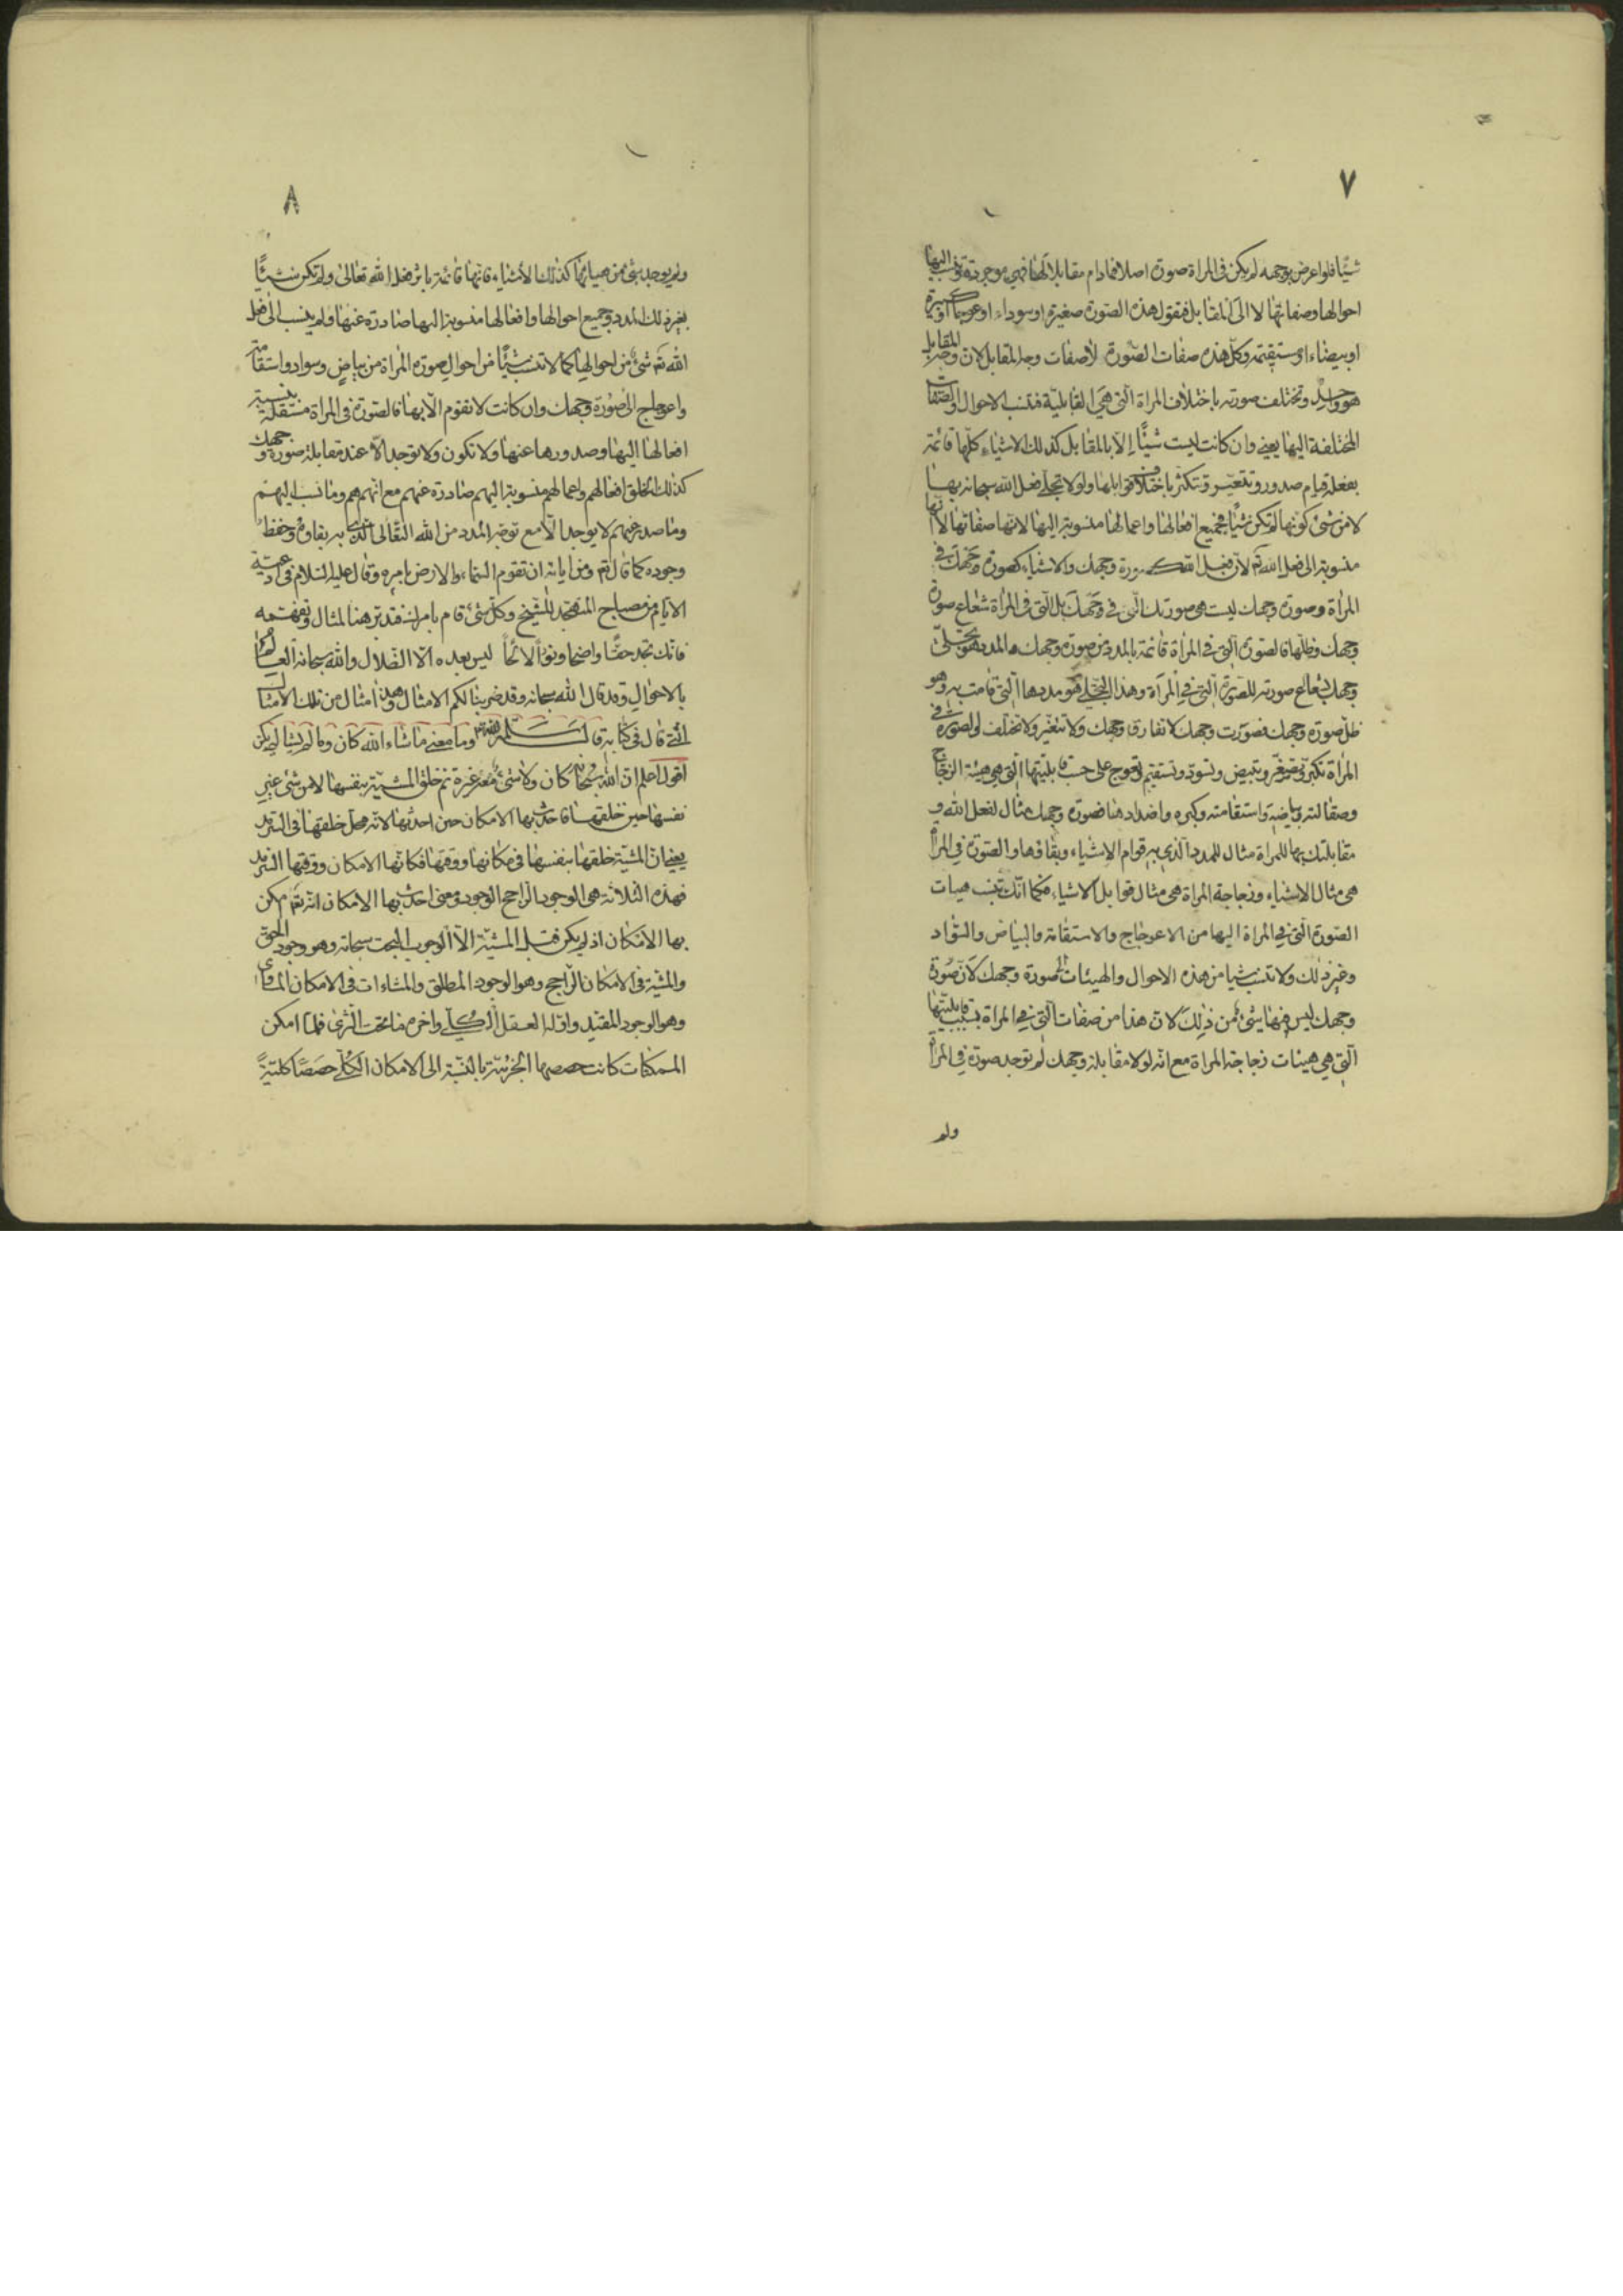 ٧
شيئا فلو اعرض بوجهه لم يكن فى المراة صورة اصلا فمادام مقابلا لها فهى موجودة وتنسب اليها
احوالها وصفاتها لا الى المقابل فتقول هذه الصورة صغيرة او سوداء او عوجاء او كبيرة
او بيضاء او مستقيمة وكل هذه صفات الصورة لا صفات وجه المقابل لان وجه المقابل
هو واحد وتختلف صورته باختلاف المراة التى هى القابلية فتنسب الاحوال والصفات
المختلفة اليها يعنى وان كانت ليست شيئا الا بالمقابل كذلك الاشياء كلها قائمة
بفعله قيام صدور وتتغير وتتكثر باختلاف قوابلها ولولا تجلى فعل الله سبحانه بها
لا من شئ كونها لم تكن شيئا فجميع افعالها واعمالها منسوبة اليها لانها صفاتها لا انها
منسوبة الى فعل الله تم لان فعل الله كصورة وجهك والاشياء كصورة وجهك فى
المراة وصورة وجهك ليست هى صورتك التى فى وجهك بل التى فى المراة شعاع صورة
وجهك وظلها فالصورة التى فى المراة قائمة بالمدد من صورة وجهك والمدد هو تجلى
وجهك بشعاع صورته للصورة التى فى المراة وهذا التجلى هو مددها التى قامت به وهو
ظل صورة وجهك فصورت وجهك لا تفارق وجهك ولا تتغير ولا تختلف والصورة فى
المراة تكبر وتصغر وتبيض وتسود وتستقيم وتعوج على حسب قابليتها التى هى هيئة الزجاج
وصقالته وبياضه واستقامته وكبره واضداد هنا فصورة وجهك مثال لفعل الله و
مقابلتك بها للمراة مثال للمدد الذى به قوام الاشياء وبقاؤها والصورة فى المراة
هى مثال الاشياء وزجاجة المراة هى مثال قوابل الاشياء فكما انك تنسب هيات
الصورة التى فى المراة اليها من الاعوجاج والاستقامة والبياض والسواد
وغير ذلك ولا تنسب شيا من هذه الاحوال والهيئات لصورة وجهك لان صورة
وجهك ليس فيها شئ من ذلك لان هذا من صفات التى فى المراة بسبب قابليتها
التى هى هيئات زجاجة المراة مع انه لولا مقابلة وجهك لم توجد صورة فى المراة
ولم
٨
ولم يوجد شئ من هيئاتها كذلك الاشياء فانها قائمة باثر فعل الله تعالى ولم تكن شيئا
بغير ذلك المدد وجميع احوالها وافعالها منسوبة اليها صادرة عنها ولم ينسب الى فعل
الله تم شئ من احوالها كما لا تنسب شيئا من احوال صورة المراة من بياض وسواد واستقامة
واعوجاج الى صورة وجهك وان كانت لا تقوم الا بها فالصورة فى المراة مستقلة بنسبة
افعالها اليها وصدورها عنها ولا تكون ولا توجد الا عند مقابلة صورة وجهك
كذلك الخلق افعالهم واعمالهم منسوبة اليهم صادرة عنهم مع انهم هم وما نسب اليهم
وما صدر عنهم لا يوجد الا مع توجه المدد من الله التعالى الذى به بقاوه وحفظ
وجوده كما قال تم ومن اياته ان تقوم السماء والارض بامره وقال عليه السلام فى ادعية
الايام من مصباح المتهجد للشيخ وكل شئ قام بامرك فتدبر هذا المثال وتفهمه
فانك تجد حقا واضحا ونورا لائحا ليس بعده الا الضلال والله سبحانه العالم
بالاحوال وقد قال الله سبحانه وقد ضربنا لكم الامثال وهذا امثال من تلك الامثال
التى قال فى كتابه قال سلمه الله وما معنى ما شاء الله كان وما لم يشا لم يكن
اقول اعلم ان الله سبحانه كان ولا شئ معه غيره ثم خلق المشية بنفسها لا من شئ غير
نفسها حين خلقها فاحدث بها الامكان حين احدثها لانه محل خلقها فى السرمد
يعنى ان المشية خلقها بنفسها فى مكانها ووقتها فمكانها الامكان ووقتها السرمد
فهذه الثلاثة هى الوجود الراجح الوجود ومعنى احدث بها الامكان انه تم امكن
بها الامكان اذ لم يكن قبل المشية الا الوجوب البحت سبحانه وهو وجود الحق
والمشية فى الامكان الراجح وهو الوجود المطلق والمشاءات فى الامكان المساوى
وهو الوجود المقيد واوله العقل الكلى واخره ما تحت الثرى فلما امكن
الممكنات كانت حصصها الجزئية بالنسبة الى الامكان الكلى حصصا كلية